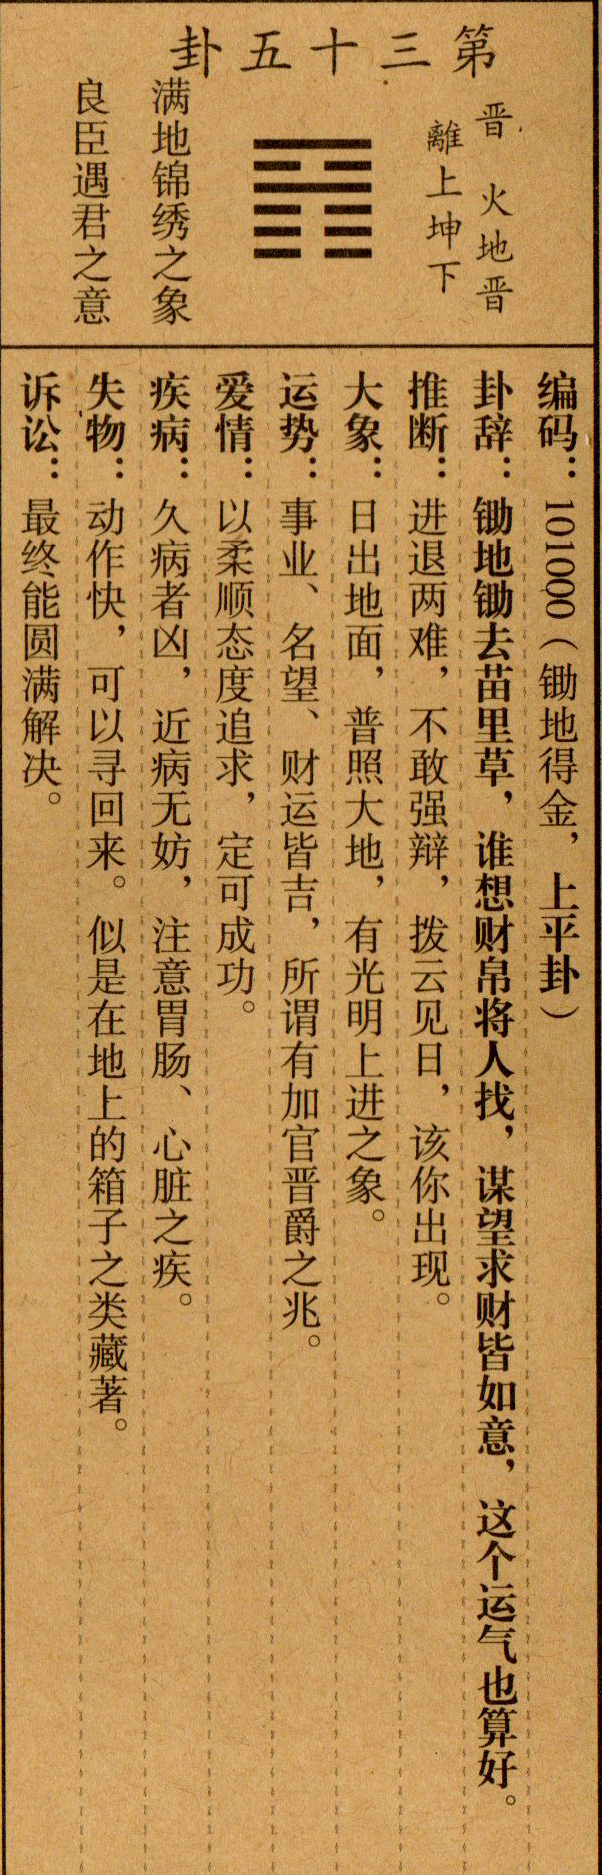 第三十五卦
晋 火地晋
離上坤下
满地锦绣之象
良臣遇君之意
编码：101000（锄地得金，上平卦）
卦辞：锄地锄去苗里草，谁想财帛将人找，谋望求财皆如意，这个运气也算好。
推断：进退两难，不敢强辩，拨云见日，该你出现。
大象：日出地面，普照大地，有光明上进之象。
运势：事业、名望、财运皆吉，所谓有加官晋爵之兆。
爱情：以柔顺态度追求，定可成功。
疾病：久病者凶，近病无妨，注意胃肠、心脏之疾。
失物：动作快，可以寻回来。似是在地上的箱子之类藏著。
诉讼：最终能圆满解决。